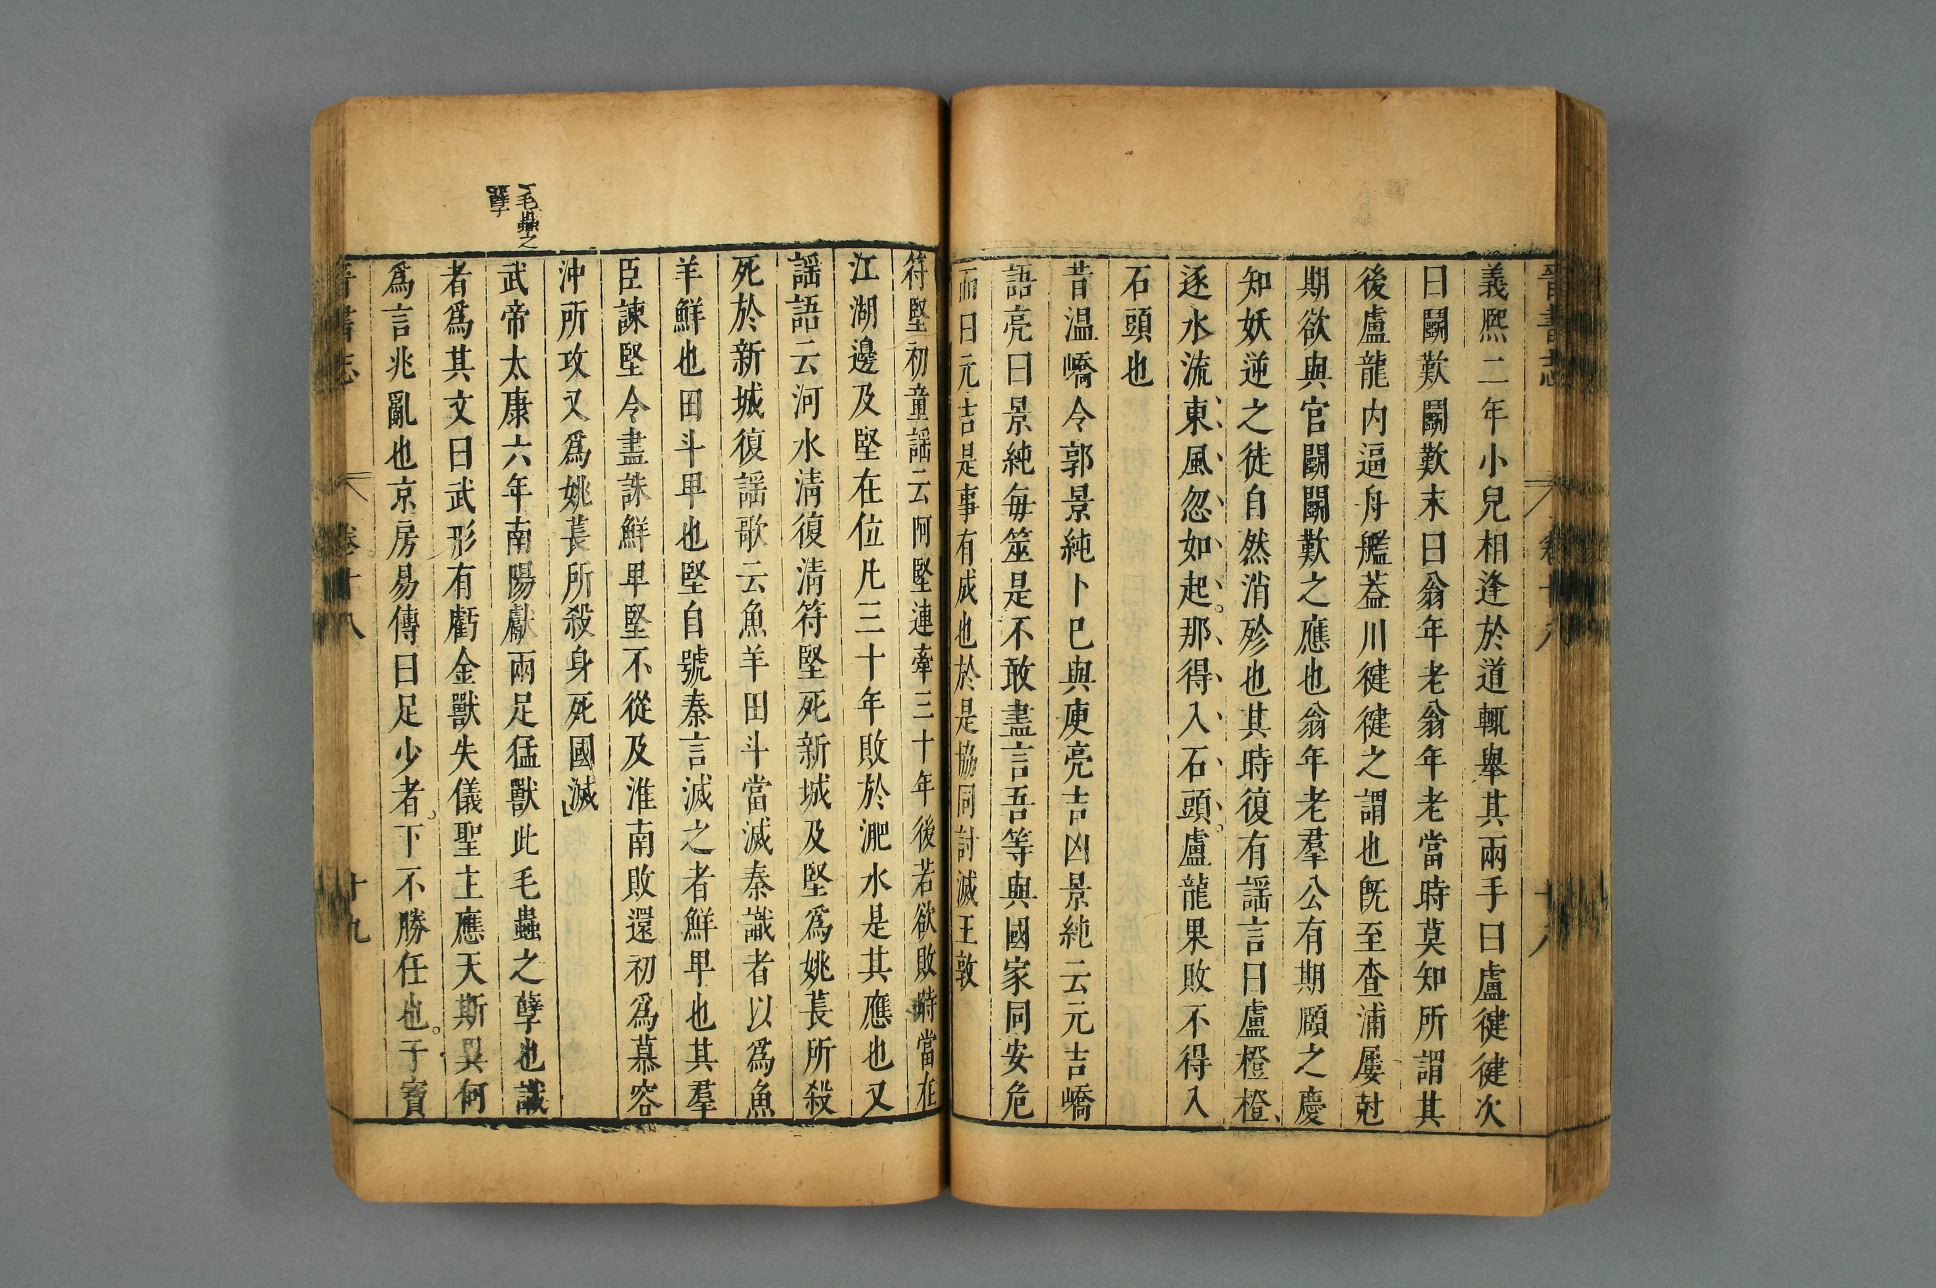 晉書志
卷十八
十八
義熙二年小兒相逢於道輒舉其兩手曰盧健健次
曰鬭歎鬭歎末曰翁年老翁年老當時莫知所謂其
後盧龍内逼舟艦蓋川健健之謂也旣至查浦屢尅
期欲與官鬭鬭歎之應也翁年老羣公有期頤之慶
知妖逆之徒自然消殄也其時復有謡言曰盧橙橙
逐水流東風忽如起那得入石頭盧龍果敗不得入
石頭也
昔温嶠令郭景純卜巳與庾亮吉凶景純云元吉嶠
語亮曰景純每筮是不敢盡言吾等與國家同安危
而曰元吉是事有成也於是協同討滅王敦
符堅初童謡云阿堅連牽三十年後若欲敗時當在
江湖邊及堅在位凡三十年敗於淝水是其應也又
謡語云河水清復清符堅死新城及堅爲姚萇所殺
死於新城復謡歌云魚羊田斗當滅秦識者以爲魚
羊鮮也田斗卑也堅自號秦言滅之者鮮卑也其羣
臣諫堅令盡誅鮮卑堅不從及淮南敗還初爲慕容
沖所攻又爲姚萇所殺身死國滅
毛蟲之
孽
武帝太康六年南陽獻兩足猛獸此毛蟲之孽也識
者爲其文曰武形有虧金獸失儀聖主應天斯異何
爲言兆亂也京房易傳曰足少者下不勝任也干寶
晉書志
卷十八
十九